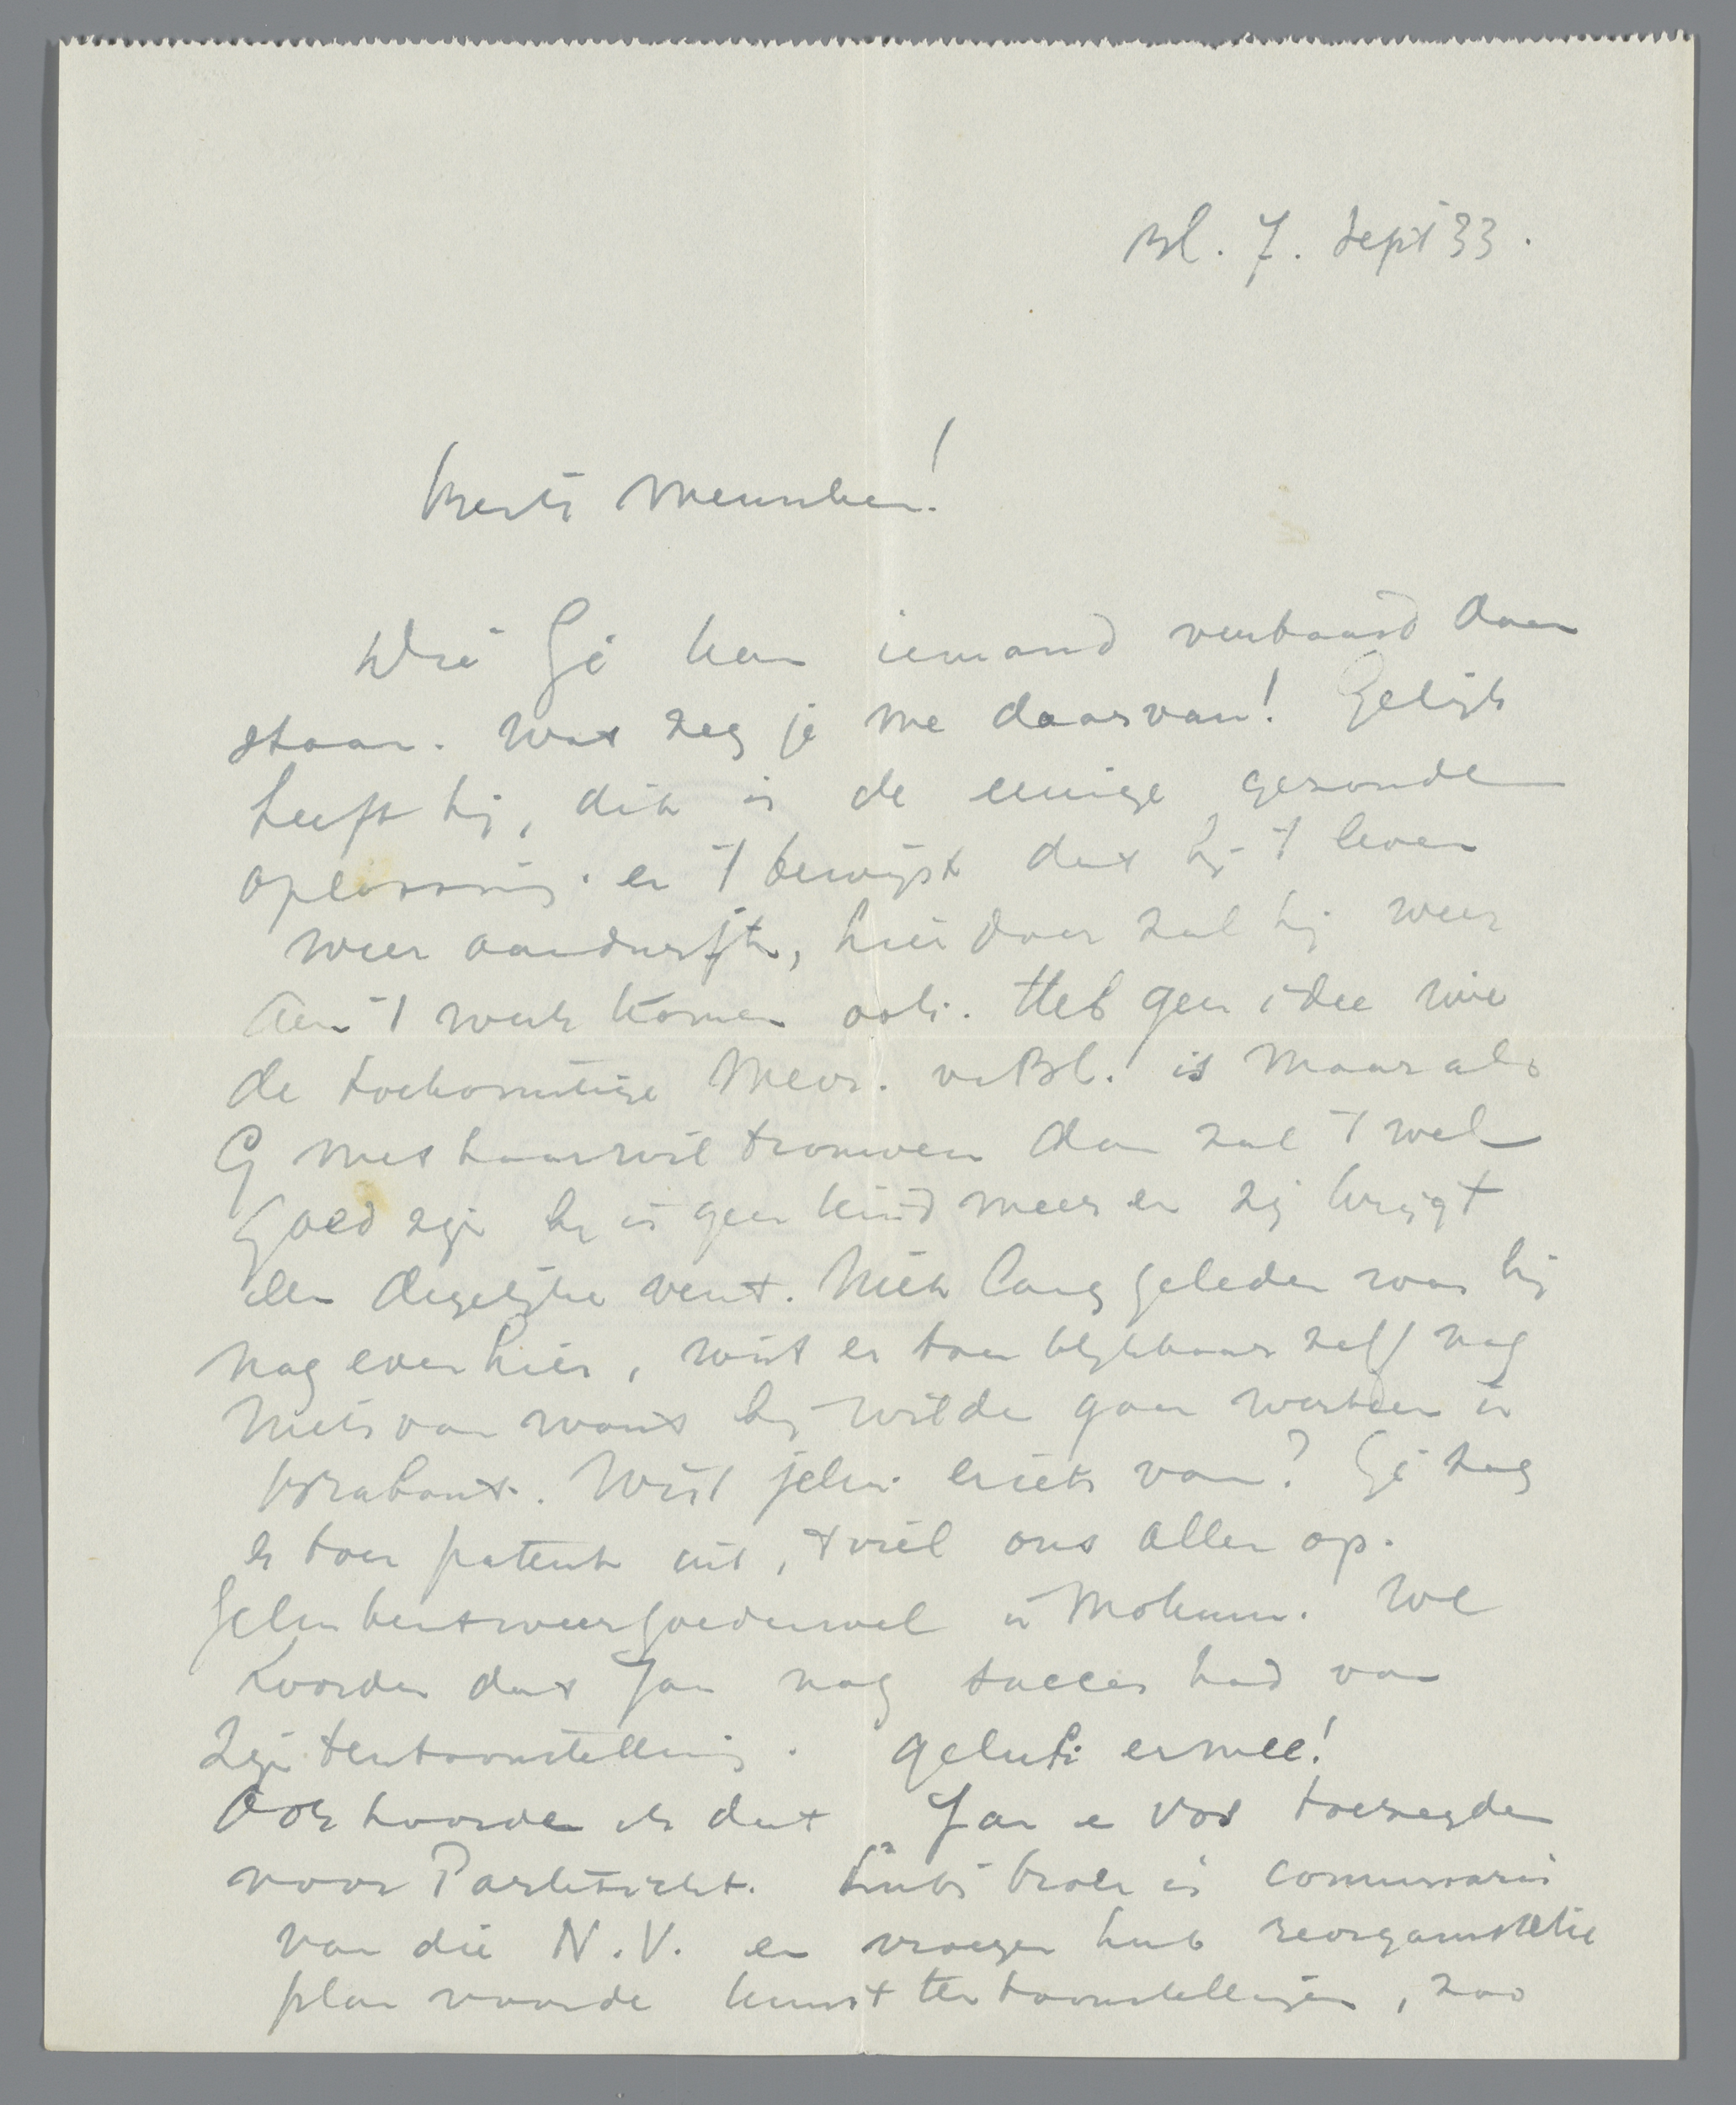 Bl. 7. Sept 33.
Beste Menschen!
Die Gé kan iemand verbaasd doen
staan. Wat zeg je me daarvan! Gelijk
heeft hij, dit is de eenige gezonde
oplossing. en 't bewijst dat hij 't leven
weer aandurft, hierdoor zal hij weer
aan 't werk komen ook. Heb geen idee wie
de toekomstige Mevr. v. Bl. is maar als
G met haar wil trouwen dan zal 't wel
goed zijn hij is geen kind meer en zij krijgt
een degelijke vent. Niet lang geleden was hij
nog even hier, wist er toen blijkbaar zelf nog
niets van want hij wilde gaan werken in
Brabant. Wist jelui er iets van? Gé zag
er toen patent uit, 't viel ons allen op.
Jelui bent weer goed en wel in Mokum. We
hoorden dat Jan nog succes had van
zijn tentoonstelling. geluk ermee!
Ook hoorde ik dat Jan en Vos toezegden
voor Parkzicht. Huib is commissaris
van die N.V. en vroegen hub reorganisatie
plan voor de kunst tentoonstellingen, zoo